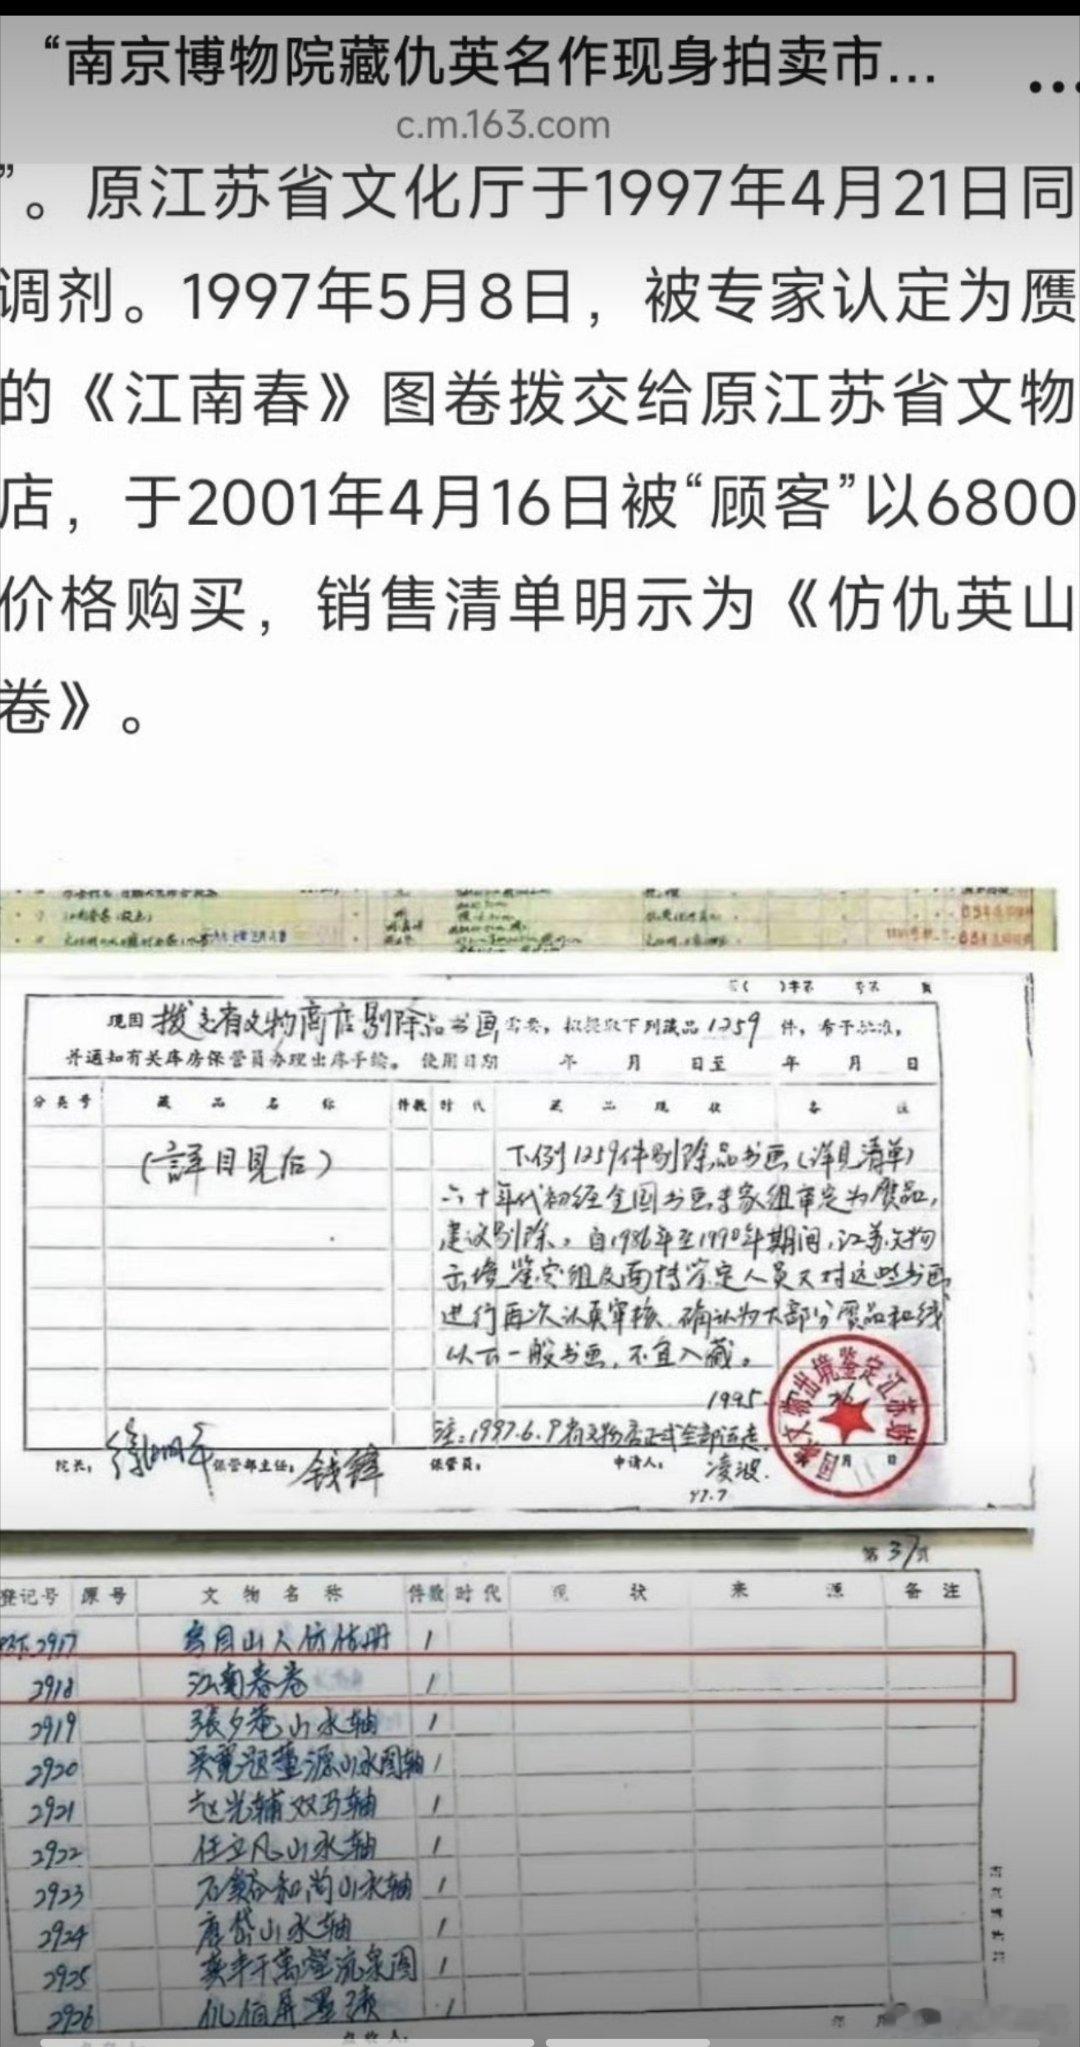 “南京博物院藏仇英名作现身拍卖市...
c.m.163.com
”。原江苏省文化厅于1997年4月21日同
调剂。1997年5月8日，被专家认定为赝
的《江南春》图卷拨交给原江苏省文物
店，于2001年4月16日被“顾客”以6800
价格购买，销售清单明示为《仿仇英山
卷》。
现因 拨交省文物商店剔除品书画 需要，拟提取下列藏品 1259 件，希予批准，
并通知有关库房保管员办理出库手续。 使用日期 年 月 日至 年 月 日
分类号 藏品名称 件数 时代 藏品现状 备注
(詳目見后)
下例1259件剔除品书画(详见清单)
六十年代初经全国书画专家组审定为赝品，
建议剔除。自1986年至1990年期间，江苏文物
出境鉴定组及南博鉴定人员又对这些书画
进行再次认真审核，确认为大部分赝品和线
以下一般书画，不宜入藏。
1995
注：1997.6.9省文物店正式全部运走
院长： 徐湖平 保管部主任： 钱锋 保管员： 申请人： 凌波.
97.7
国家文物出境鉴定江苏站
月 日
第 37 页
登记号 原号 文物名称 件数 时代 现状 来源 备注
2917 仿 册 1
2918 江南春卷 1
2919 張夕庵山水轴 1
2920 吴寬題董源山水图轴 1
2921 赵光辅双马轴 1
2922 任立凡山水轴 1
2923 石谿和尚山水轴 1
2924 唐岱山水轴 1
2925 千萬壑流泉图 1
2926 1